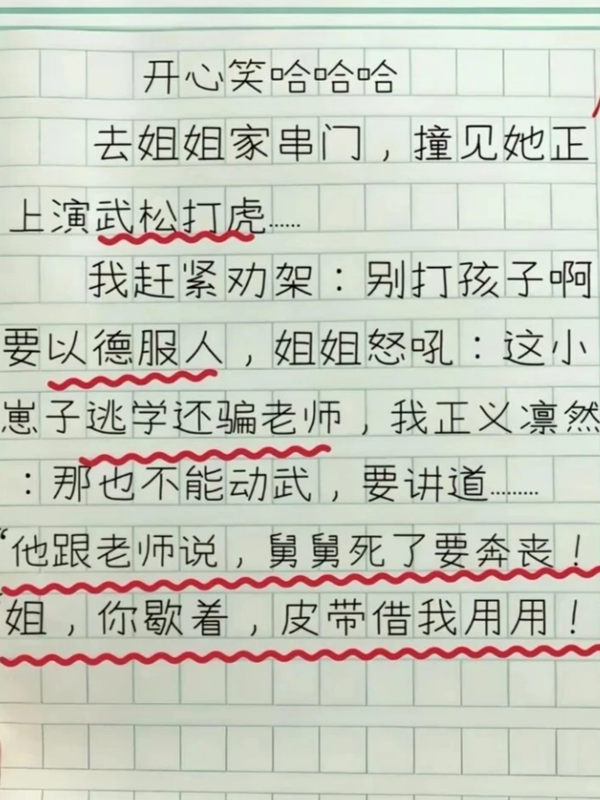 开心笑哈哈哈
去姐姐家串门，撞见她正
上演武松打虎……
我赶紧劝架：别打孩子啊
要以德服人，姐姐怒吼：这小
崽子逃学还骗老师，我正义凛然
：那也不能动武，要讲道………
“他跟老师说，舅舅死了要奔丧！
“姐，你歇着，皮带借我用用！